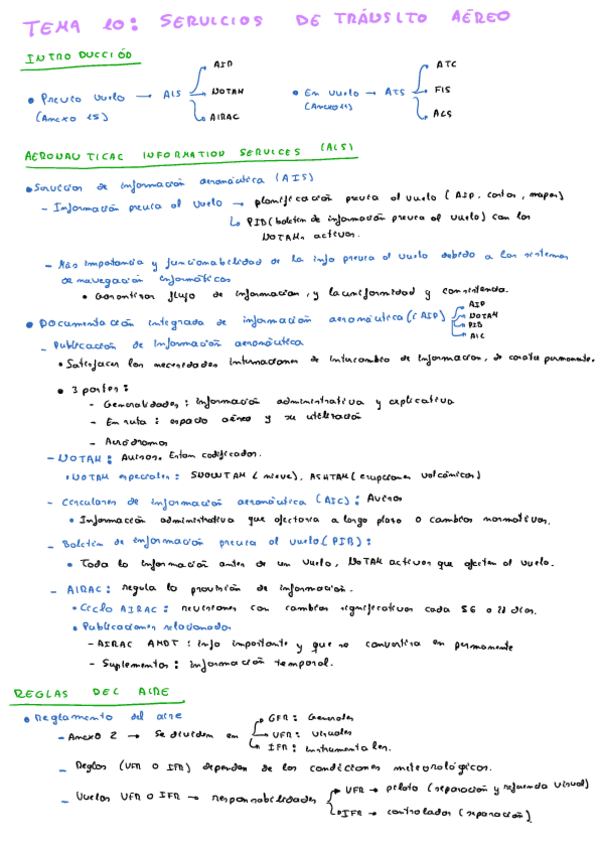 TEMA 10: SERVICIOS DE TRÁNSITO AÉREO
INTRODUCCIÓN
• PREVIO VUELO → AIS AIP NOTAM AIRAC
(ANEXO 15)
• En vuelo → ATS ATC FIS ALS
(ANEXO 11)
AERONAUTICAL INFORMATION SERVICES (AIS)
• Servicios de información aeronáutica (AIS)
- Información previa al vuelo → planificación previa al vuelo (AIP, cartas, mapas)
↳ PIB (boletín de información previa al vuelo) con los
NOTAMs activos.
- Más importancia y funcionabilidad de la info previa al vuelo debido a los sistemas
de navegación informáticos
• Garantizar flujo de información, y la uniformidad y consistencia.
• Documentación integrada de información aeronáutica (IAIP) AIP NOTAM PIB AIC
- Publicación de información aeronáutica
• Satisfacer las necesidades internaciones de intercambio de información, de permanente.
• 3 partes:
- Generalidades: información administrativa y explicativa
- En ruta: espacio aéreo y su utilización
- Aeródromos
- NOTAM: Avisos. Estan codificados.
• NOTAM especiales: SNOWTAM (nieve), ASHTAM (erupciones volcánicas)
- Circulares de información aeronáutica (AIC): Avisos
• Información administrativa que afectaria a largo plazo o cambios normativos.
- Boletín de información previa al vuelo (PIB):
• Toda la información antes de un vuelo, NOTAM activos que afecten al vuelo.
- AIRAC: regula la provisión de información.
• Ciclo AIRAC: revisiones con cambios significativos cada 56 o 28 días.
• Publicaciones relacionadas
- AIRAC AMDT: info importante y que se convertira en permanente
- Suplementos: información temporal.
REGLAS DEL AIRE
• Reglamento del aire
- ANEXO 2 → Se dividen en GFR: Generales VFR: Visuales IFR: Instrumentales.
- Reglas (VFR o IFR) dependen de las condiciones meteorológicas.
- Vuelos VFR o IFR → responsabilidades VFR → piloto (separación y referencia visual)
IFR → controlador (separación)